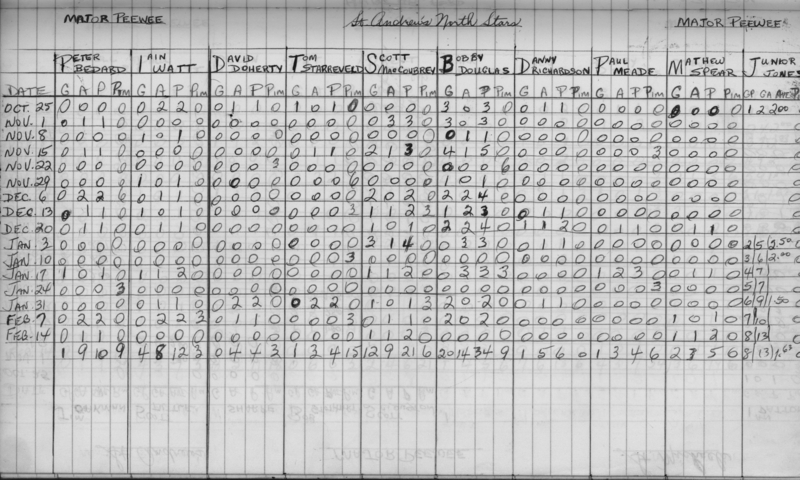 MAJOR PEEWEE St. Andrew's North Stars MAJOR PEEWEE
PETER BEDARD IAIN WATT DAVID DOHERTY TOM STARREVELD SCOTT MACCOUBREY BOBBY DOUGLAS DANNY RICHARDSON PAUL MEADE MATHEW SPEAR JUNIOR JONES
DATE G A P Pim G A P Pim G A P Pim G A P Pim G A P Pim G A P Pim G A P Pim G A P Pim G A P Pim GP GA AVE
OCT. 25 0 0 0 0 0 2 2 0 0 1 1 0 1 0 1 0 0 0 0 0 3 0 3 0 0 1 1 0 0 0 0 0 0 0 0 0 1 2 2.00
NOV. 1 0 1 1 0 0 0 0 0 0 0 0 0 0 0 0 0 0 3 3 0 3 0 3 0 0 0 0 0 0 0 0 0 0 0 0 0
NOV. 8 0 0 0 0 1 0 1 0 0 0 0 0 0 0 0 0 0 0 0 0 0 1 1 0 0 0 0 0 0 0 0 0 0 0 0 0
NOV. 15 0 1 1 0 0 0 0 0 0 0 0 0 0 1 1 0 2 1 3 0 4 1 5 0 0 0 0 0 0 0 0 3 0 0 0 0
NOV. 22 0 0 0 0 0 0 0 0 0 0 0 3 0 0 0 0 0 0 0 0 0 0 0 6 0 0 0 0 0 0 0 0 0 0 0 0
NOV. 29 0 0 0 0 1 0 1 0 0 0 0 0 0 0 0 6 0 0 0 0 1 0 1 0 0 0 0 0 0 0 0 0 0 0 0 0
DEC. 6 0 2 2 6 0 1 1 0 0 0 0 0 0 0 0 0 2 0 2 0 2 2 4 0 0 0 0 0 0 0 0 0 0 0 0 0
DEC. 13 0 1 1 0 1 0 1 0 0 0 0 0 0 0 0 3 1 1 2 3 1 2 3 0 0 1 1 0 0 0 0 0 0 0 0 0
DEC. 20 0 1 1 0 0 1 1 0 0 0 0 0 0 0 0 0 1 0 1 0 2 2 4 0 1 1 2 0 0 1 1 0 0 1 1 0
JAN. 3 0 0 0 0 0 0 0 0 0 0 0 0 0 0 0 0 3 1 4 0 0 3 3 0 0 1 1 0 0 0 0 0 0 0 0 0 2/5/2.50
JAN. 10 0 0 0 0 0 0 0 0 0 0 0 0 0 0 0 3 0 0 0 0 0 0 0 0 0 0 0 0 0 0 0 0 0 0 0 0 3/6/2.00
JAN. 17 1 0 1 0 1 1 2 0 0 0 0 0 0 0 0 0 1 1 2 0 0 3 3 3 0 0 0 0 1 2 3 0 0 1 1 0 4/7
JAN. 24 0 0 0 3 0 0 0 0 0 0 0 0 0 0 0 0 0 0 0 0 0 0 0 0 0 0 0 0 0 0 0 3 0 0 0 0 5/7
JAN. 31 0 0 0 0 0 1 1 0 0 2 2 0 0 2 2 0 1 0 1 3 2 0 2 0 0 1 1 0 0 0 0 0 0 0 0 0 6/9/1.50
FEB. 7 0 2 2 0 0 2 2 3 0 1 1 0 0 0 0 3 0 1 1 0 2 0 2 0 0 0 0 0 0 0 0 0 1 0 1 0 7/10
FEB. 14 0 1 1 0 0 0 0 0 0 0 0 0 0 0 0 0 1 1 2 0 0 0 0 0 0 0 0 0 0 0 0 0 1 1 2 0 8/13
1 9 10 9 4 8 12 3 0 4 4 3 1 3 4 15 12 9 21 6 20 14 34 9 1 5 6 0 1 3 4 6 2 3 5 0 8/13/1.63